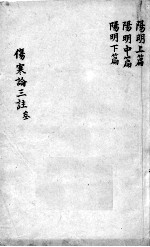 陽明上篇
陽明中篇
陽明下篇
傷寒論三註 叄